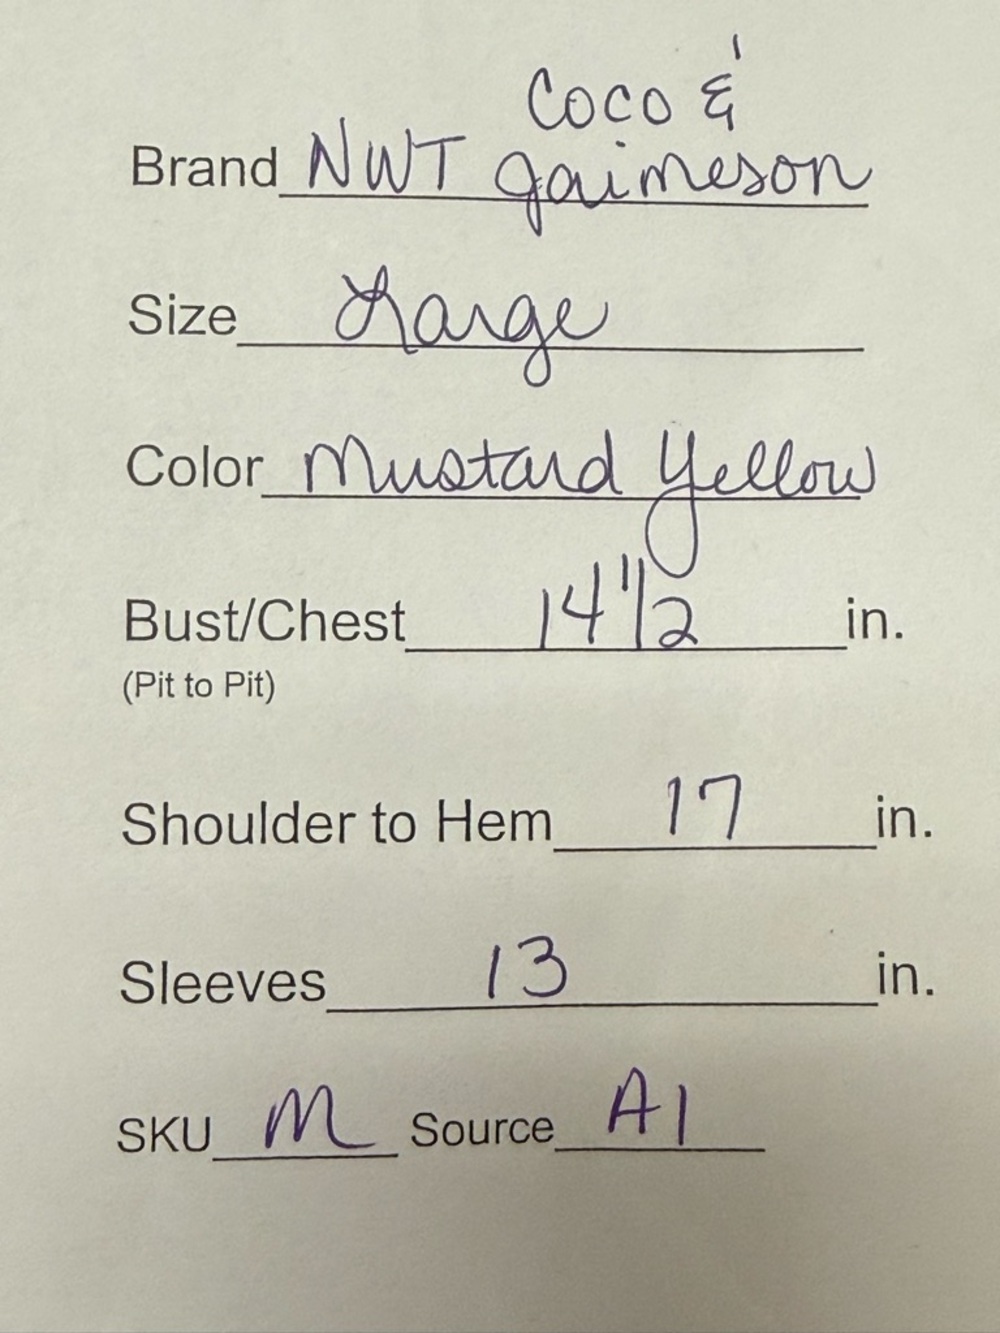 Coco &
Brand NWT Jaimeson
Size Large
Color Mustard Yellow
Bust/Chest 14 1/2 in.
(Pit to Pit)
Shoulder to Hem 17 in.
Sleeves 13 in.
SKU M Source A1